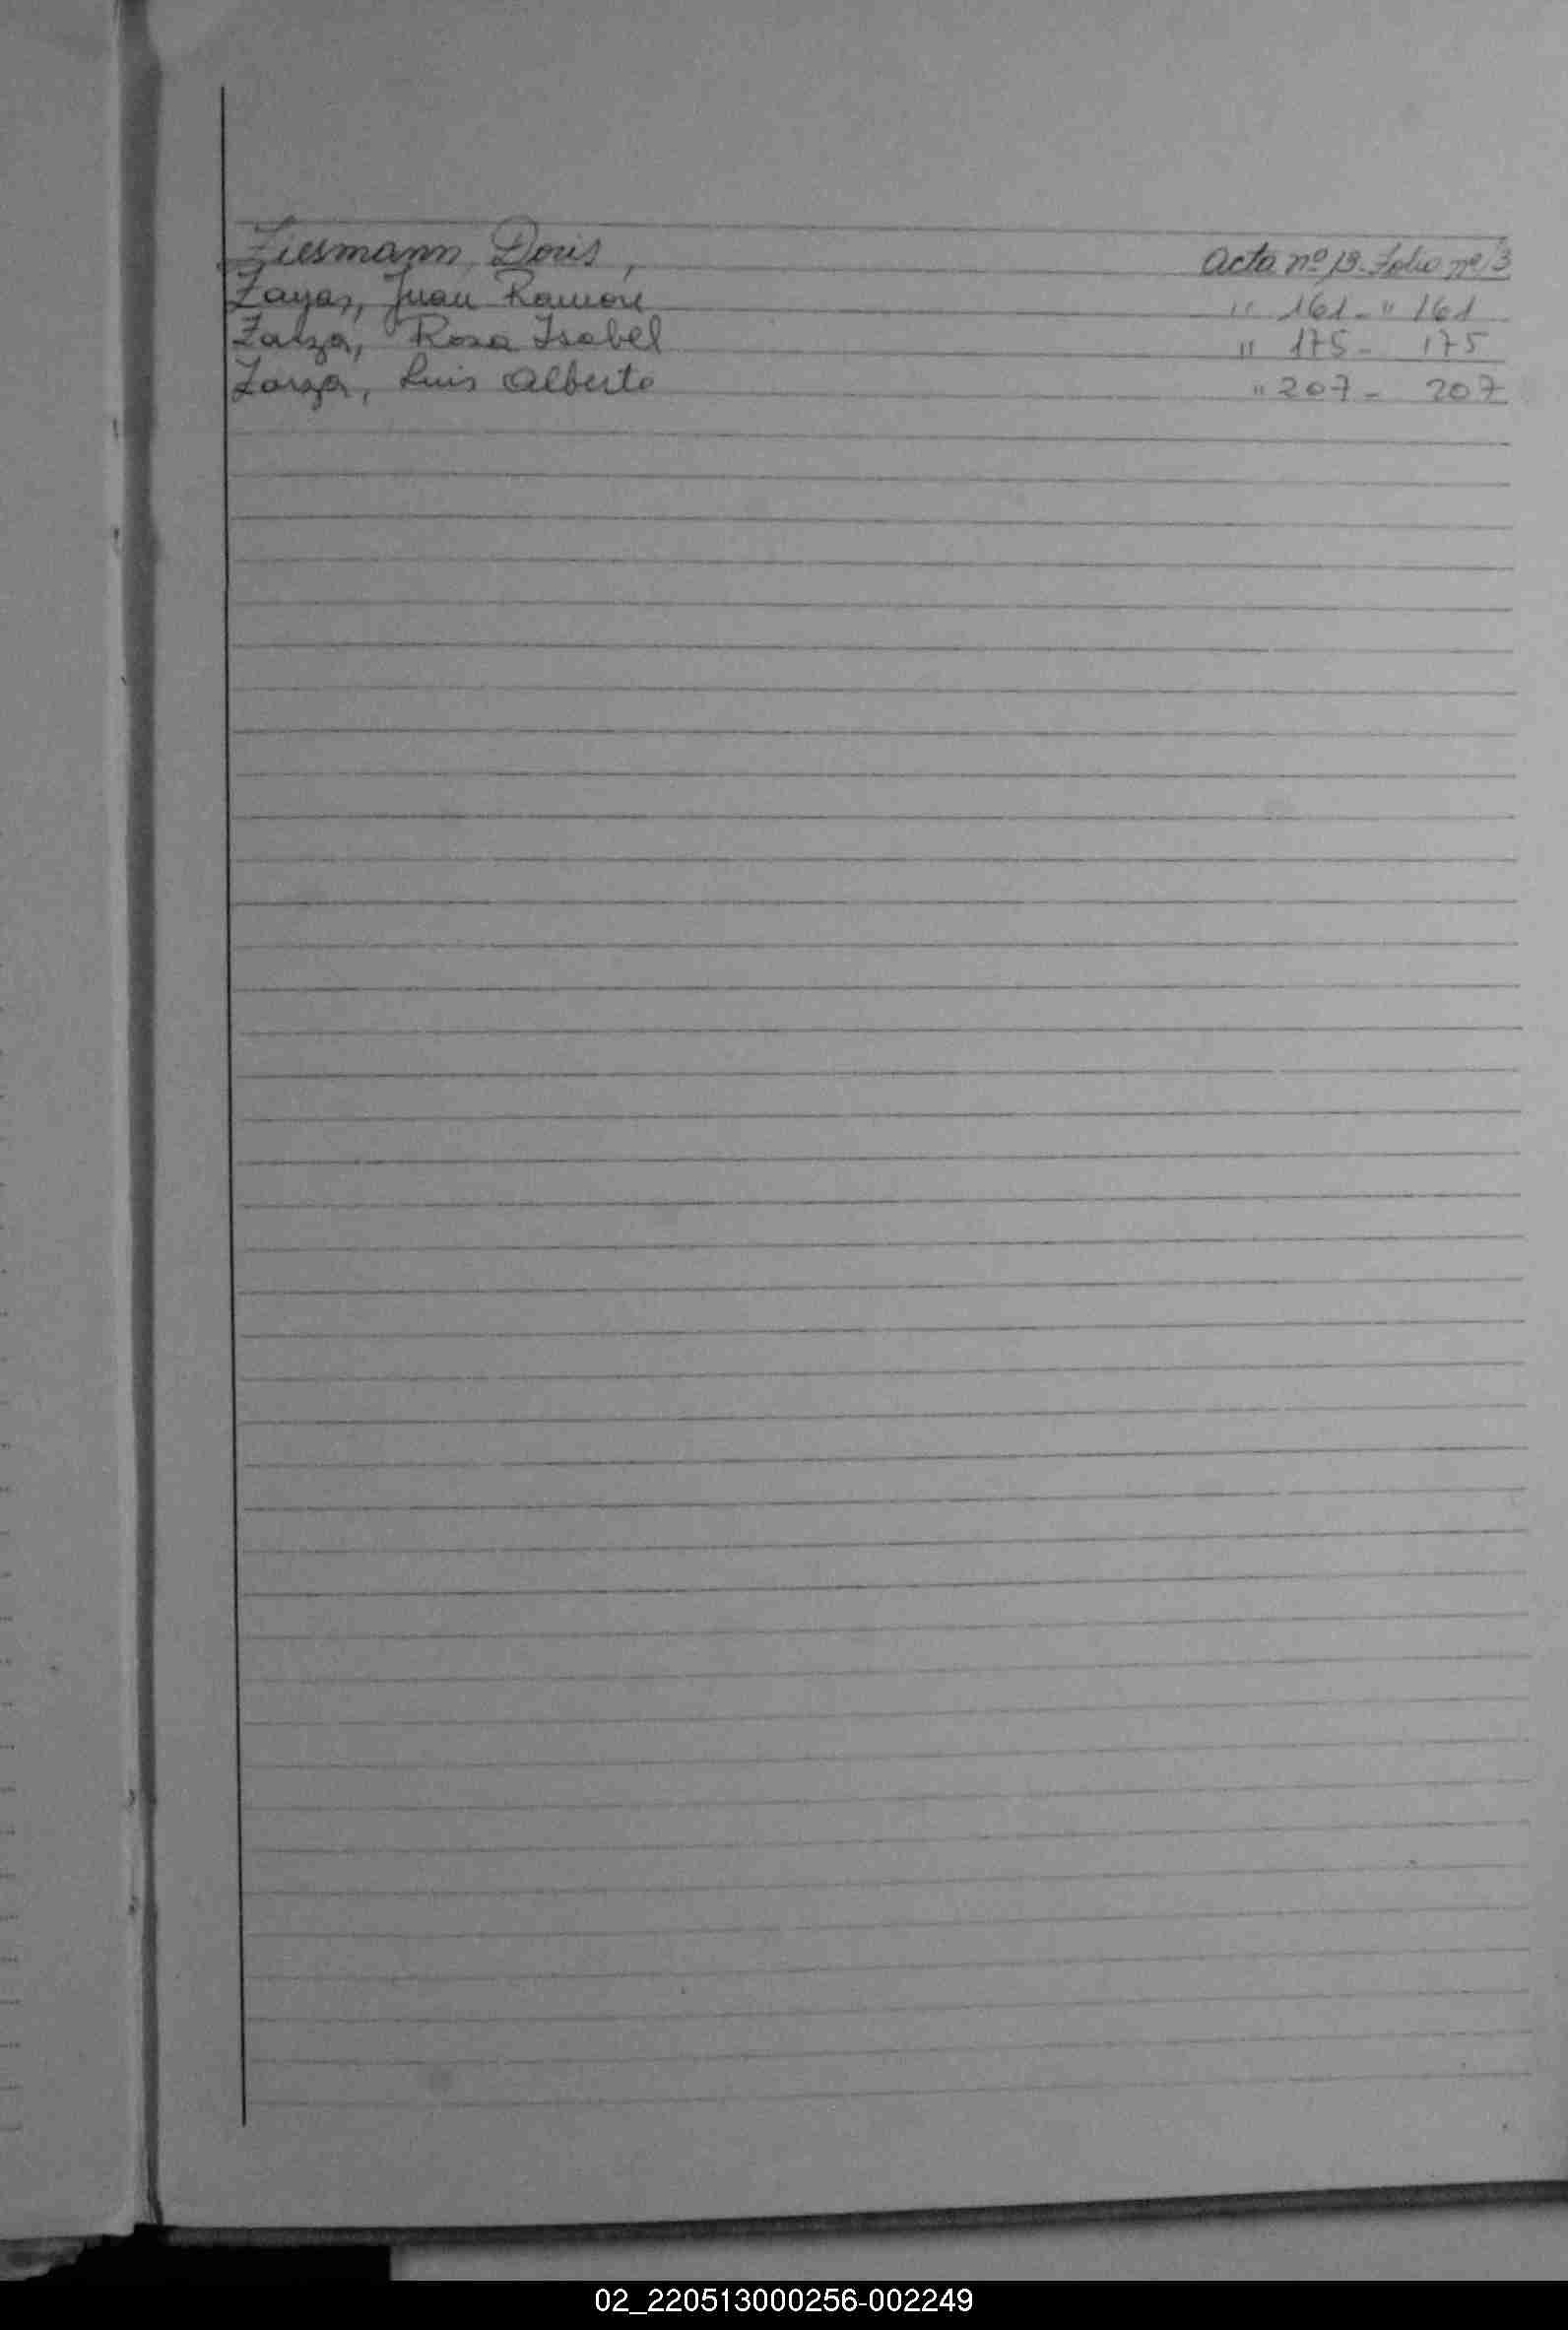 Ziesmann, Doris, Acta nº 13. Folio nº 13
Zayas, Juan Ramón " 161 - " 161
Zarza, Rosa Isabel " 175 - 175
Zarza, Luis Alberto " 207 - 207
02_220513000256-002249